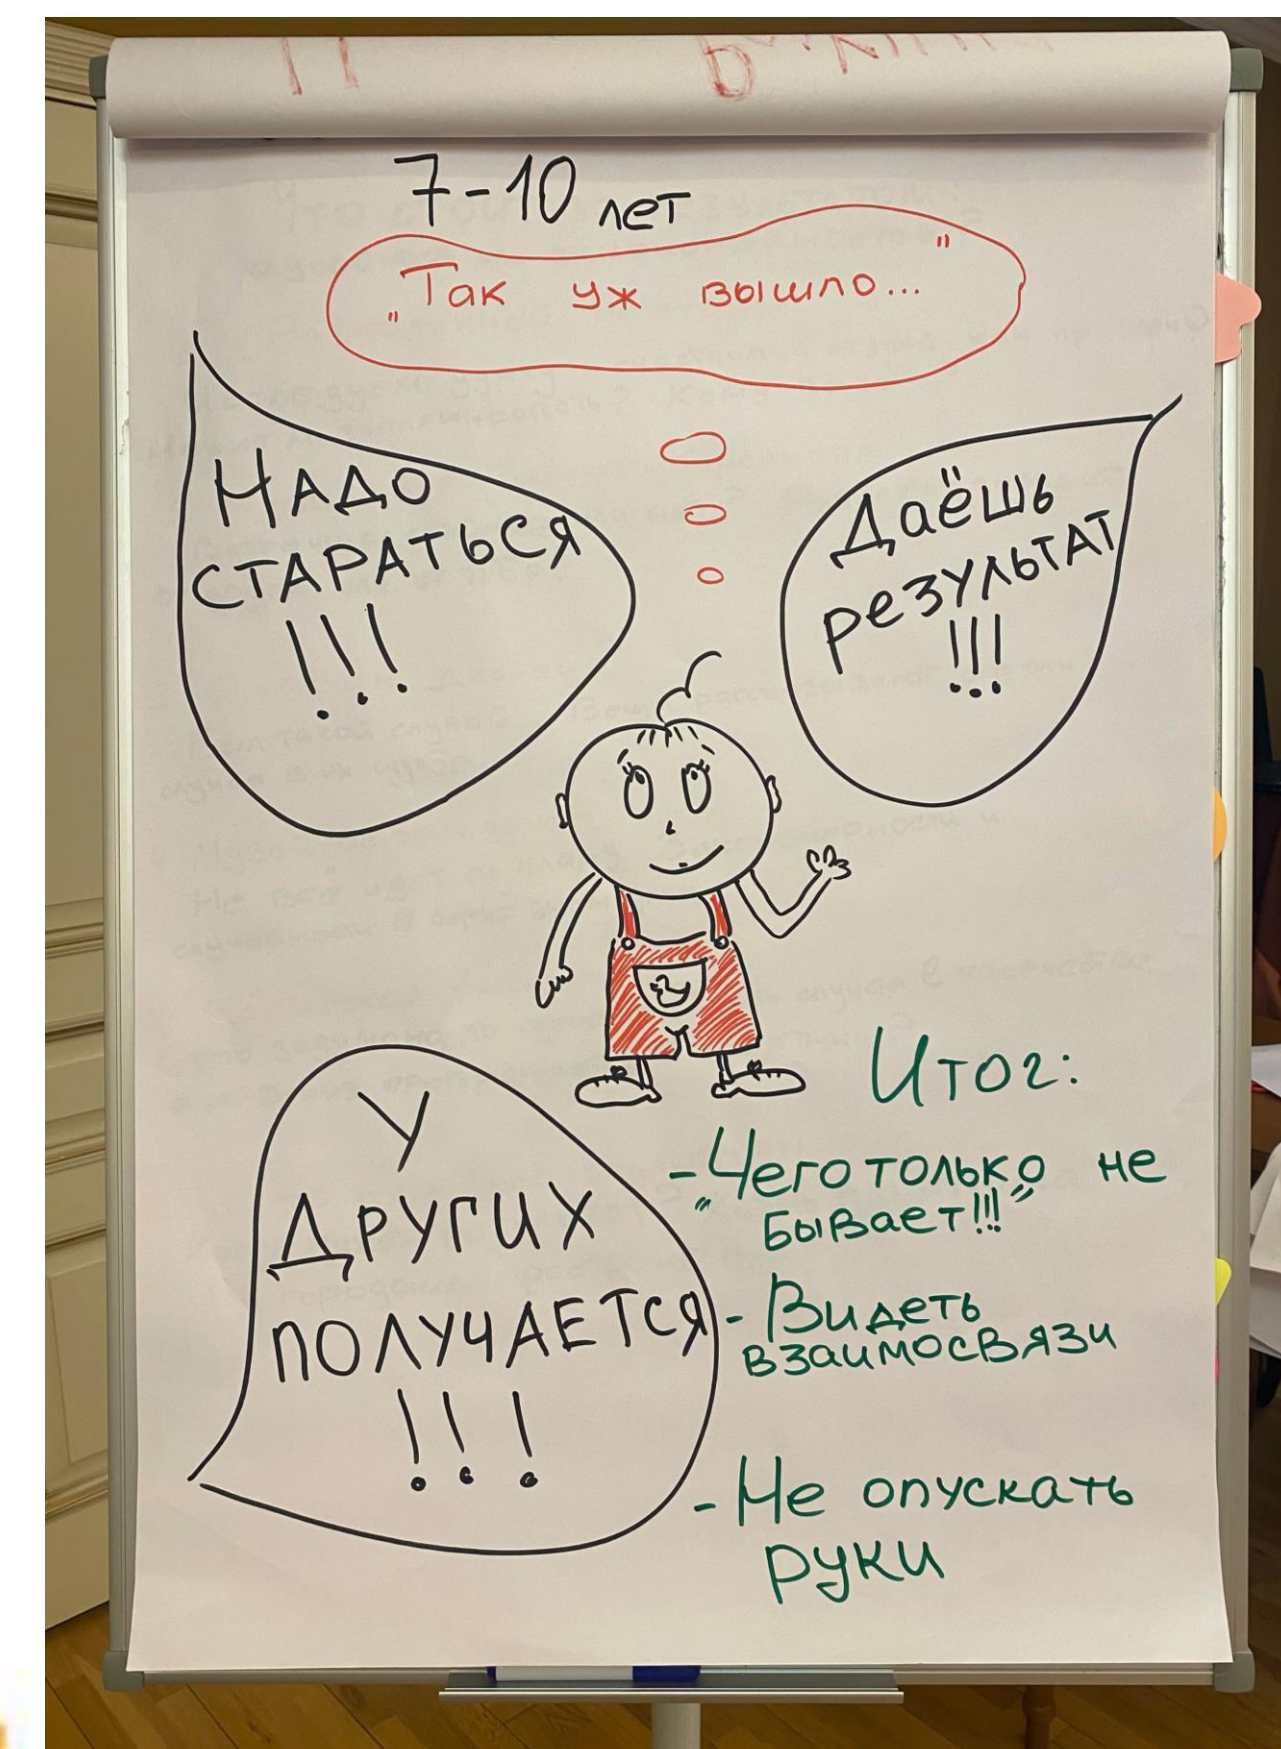 7-10 лет
„Так уж вышло..."
НАДО
СТАРАТЬСЯ
!!!
Даёшь
результат
!!!
У
ДРУГИХ
ПОЛУЧАЕТСЯ
!!!
Итог:
- „Чего только не
бывает!!!"
- Видеть
взаимосвязи
- Не опускать
руки